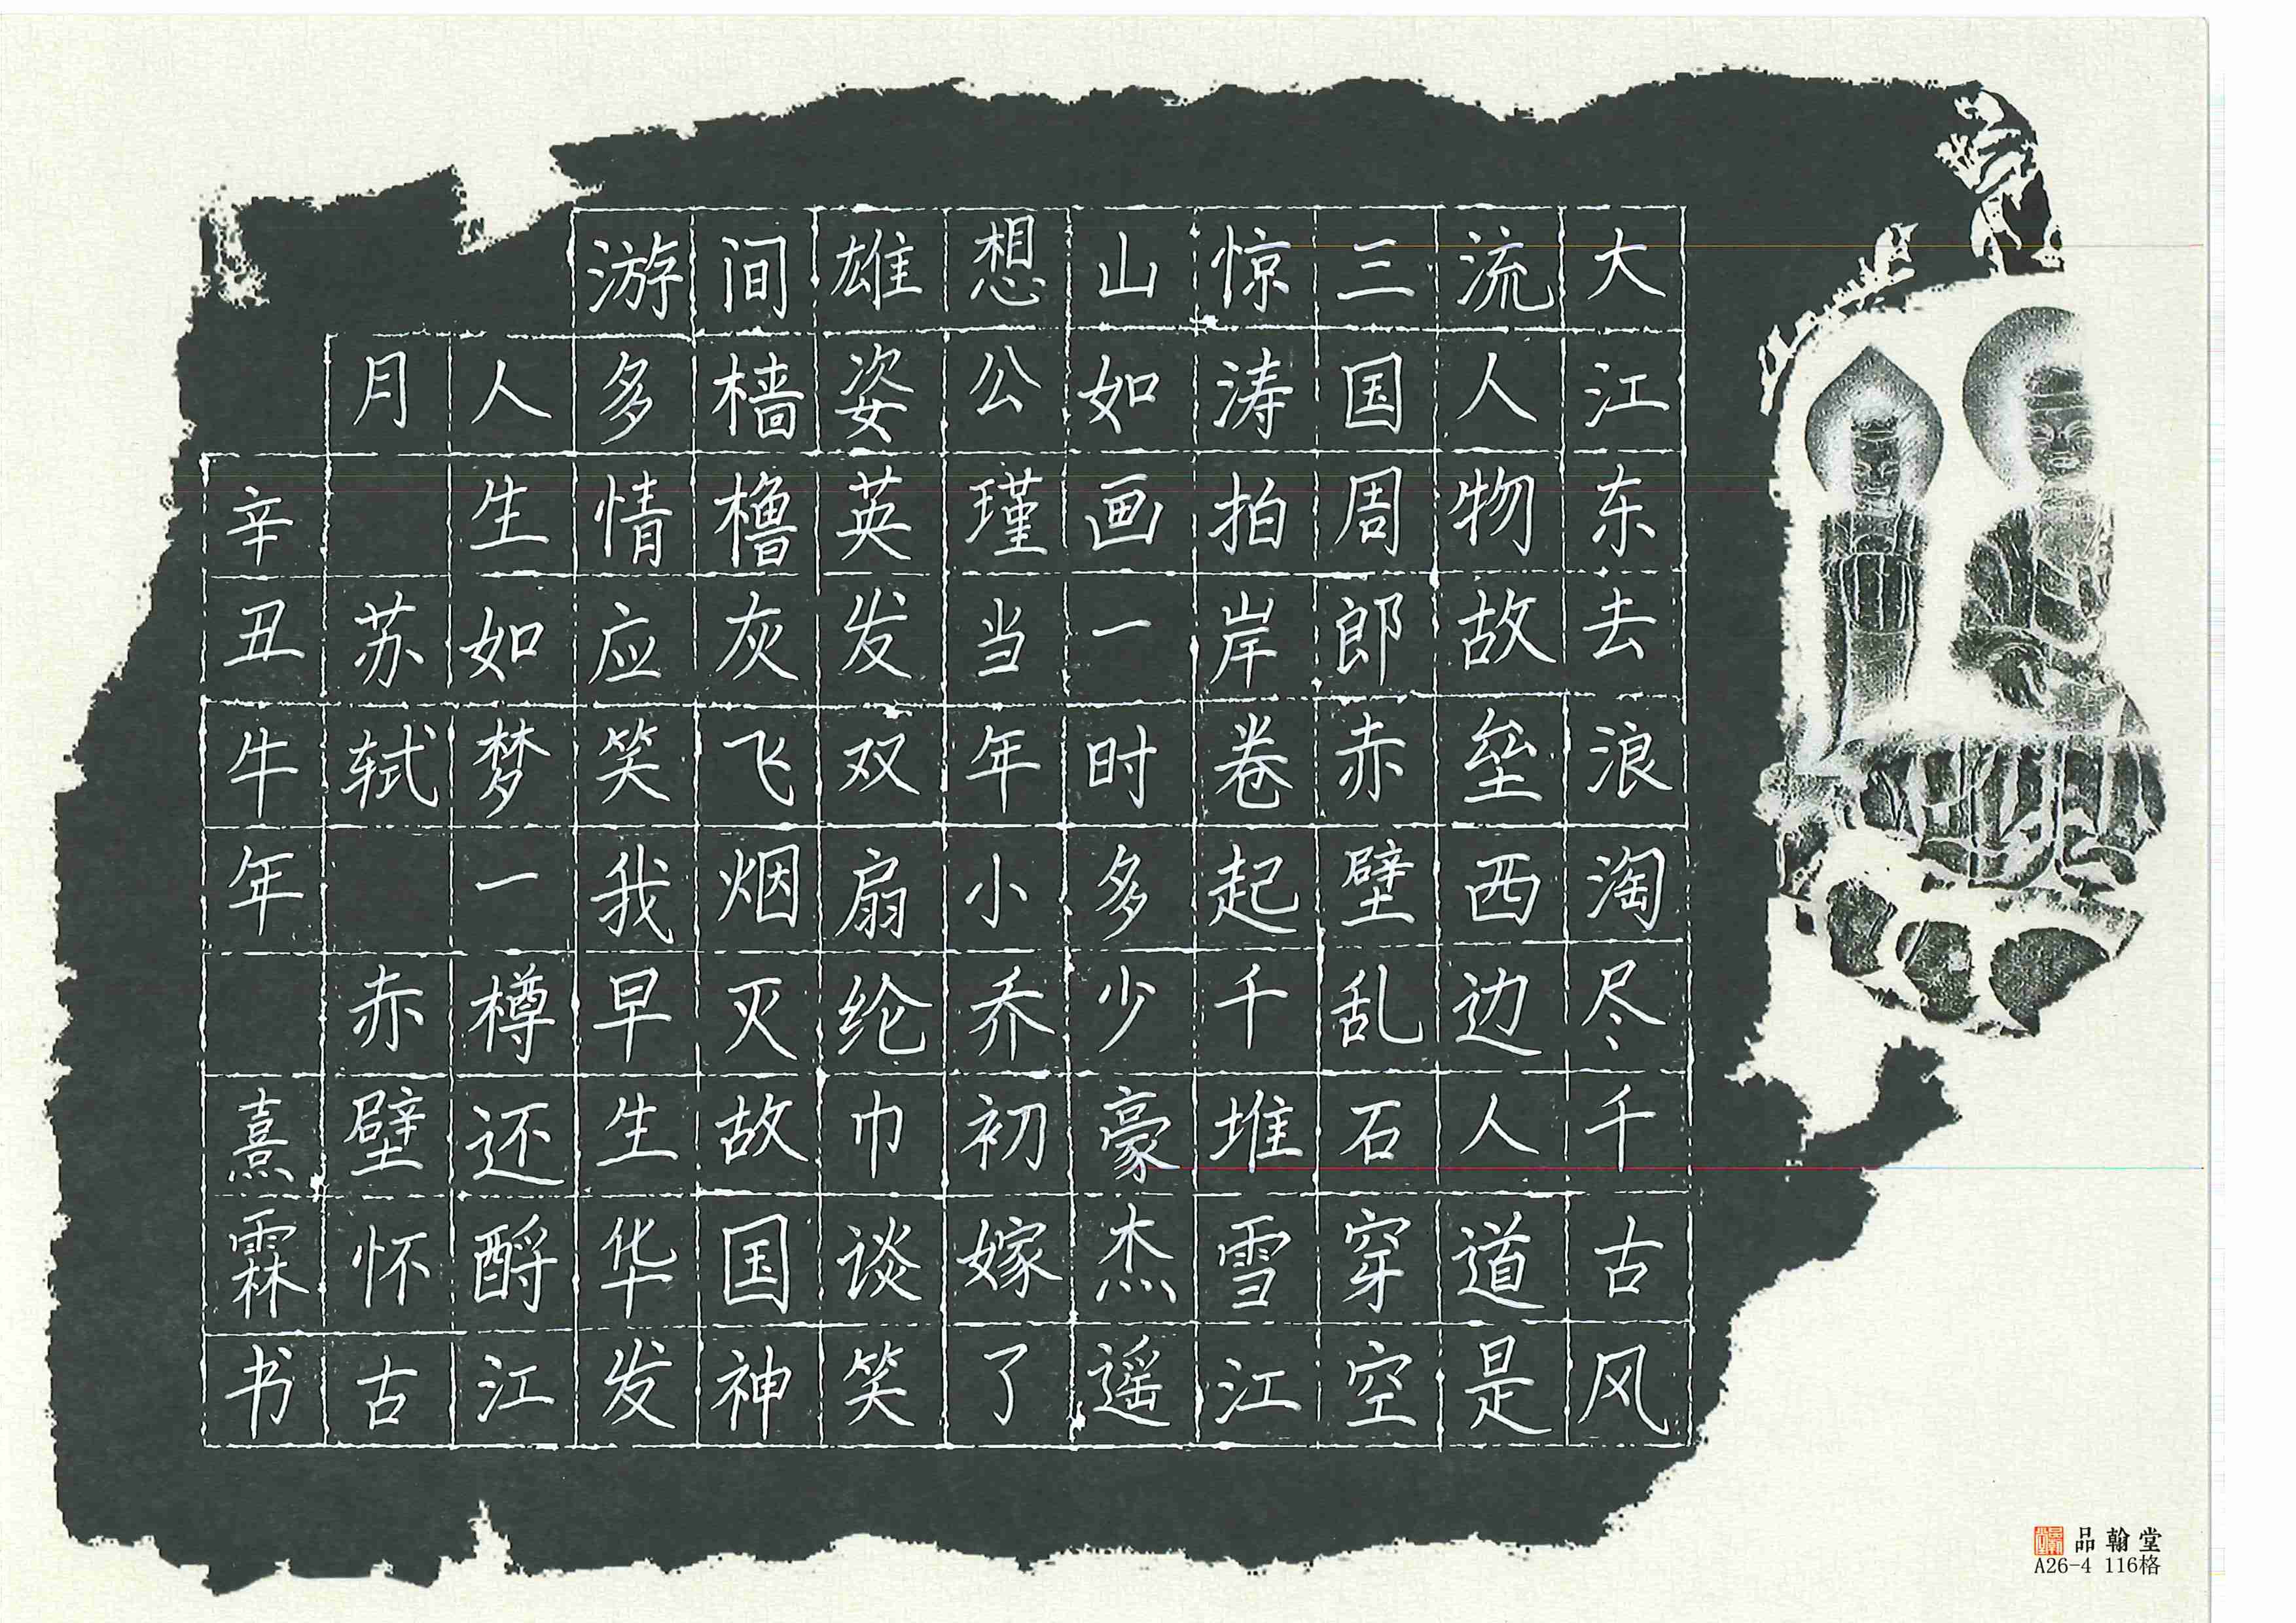 大江东去浪淘尽千古风
流人物故垒西边人道是
三国周郎赤壁乱石穿空
惊涛拍岸卷起千堆雪江
山如画一时多少豪杰遥
想公瑾当年小乔初嫁了
雄姿英发双扇纶巾谈笑
间樯橹灰飞烟灭故国神
游多情应笑我早生华发
人生如梦一樽还酹江
月 苏轼 赤壁怀古
辛丑牛年 熹霖书
品翰堂
A26-4 116格